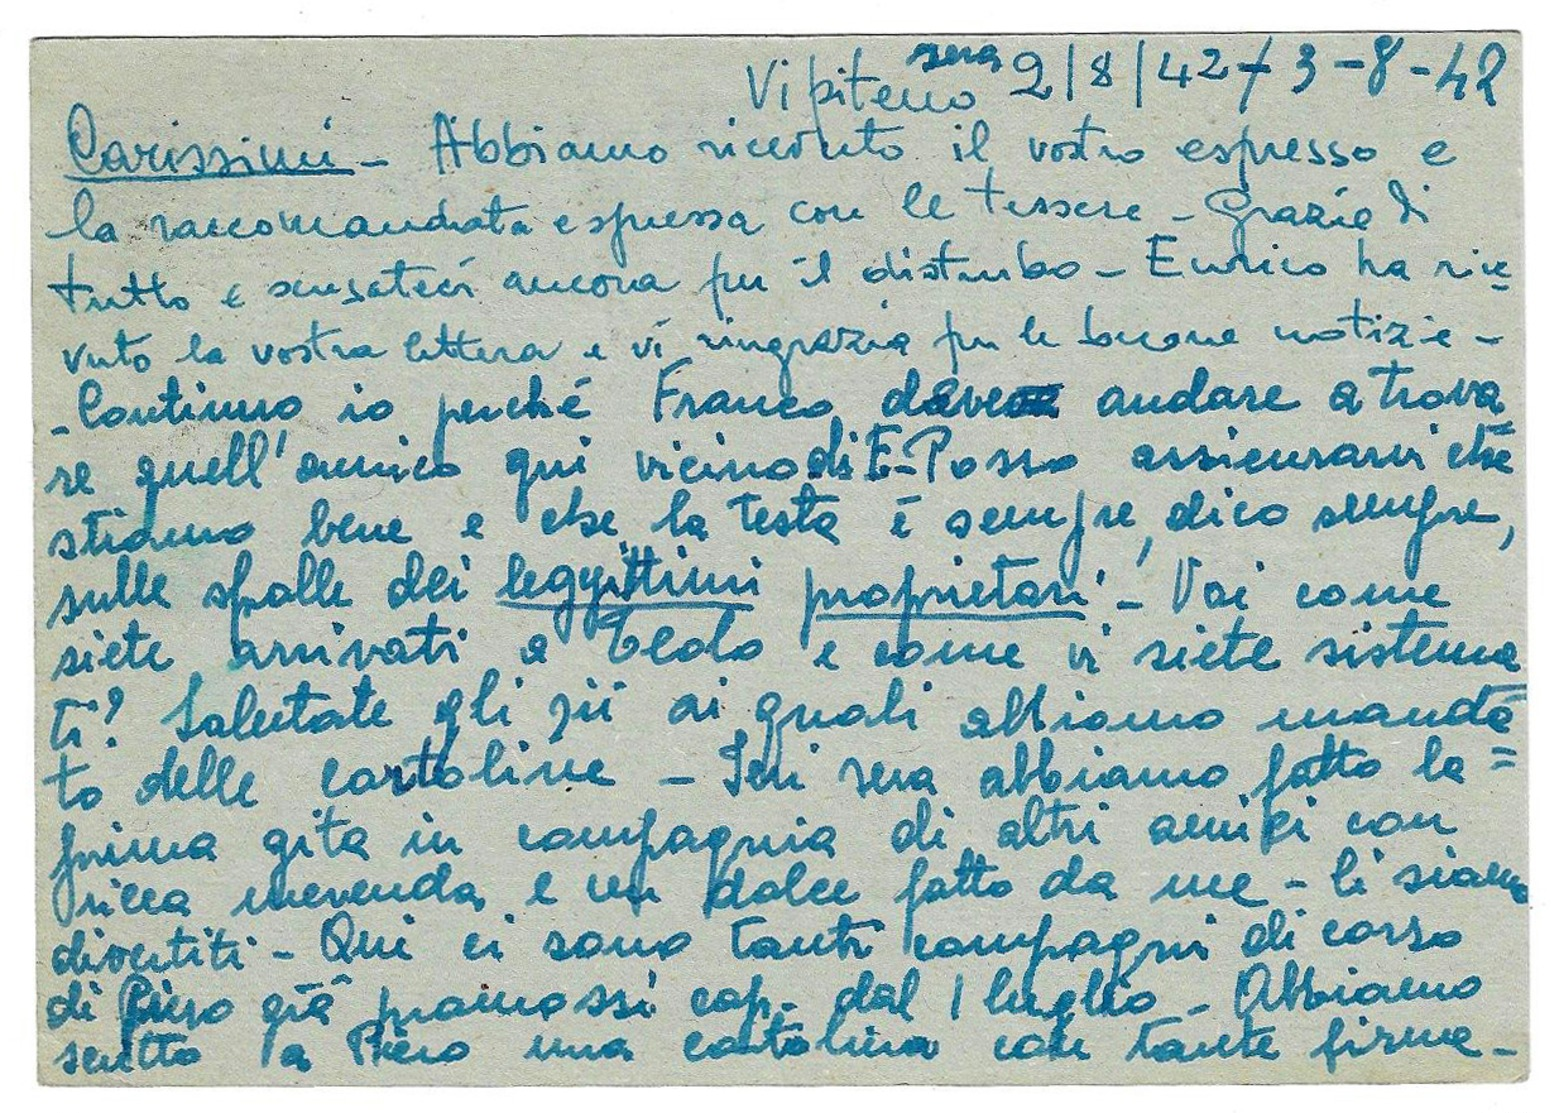 Vipiteno sera 2/8/42 + 3-8-42
Carissimi - Abbiamo ricevuto il vostro espresso e
la raccomandata espressa con le tessere - Grazie di
tutto e scusateci ancora per il disturbo - Enrico ha rice=
vuto la vostra lettera e vi ringrazia per le buone notizie -
- Continuo io perché Franco deve andare a trova=
re quell'amico qui vicino di E - Posso assicurarvi che
stiamo bene e che la testa è sempre, dico sempre,
sulle spalle dei leggittimi proprietari - Voi come
siete arrivati a Teolo e come vi siete sistema=
ti? Salutate gli zii ai quali abbiamo manda=
to delle cartoline - Ieri sera abbiamo fatto la
prima gita in compagnia di altri amici con
ricca merenda e un dolce fatto da me - Ci siamo
divertiti - Qui ci sono tanti compagni di corso
di Piero già promossi cap. dal 1 luglio - Abbiamo
scritto a Piero una cartolina con tante firme -